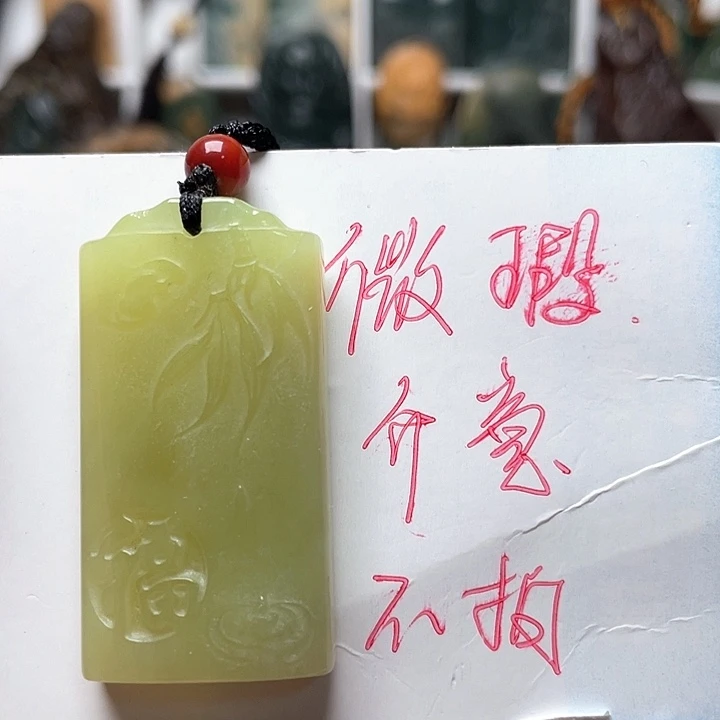 微瑕.
介意
不拍
福